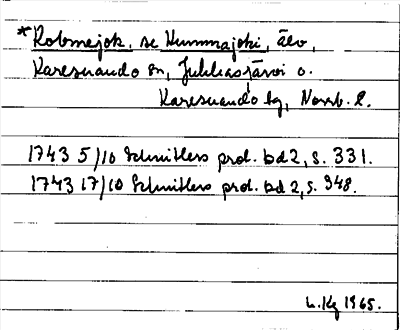 *Robmejok, se Hummajoki, älv,
Karesuando sn, Jukkasjärvi o.
Karesuando tg, Norrb. l.
1743 5/10 Schnitlers prot. bd 2, s. 331.
1743 17/10 Schnitlers prot. bd 2, s. 348.
L.Kg 1965.